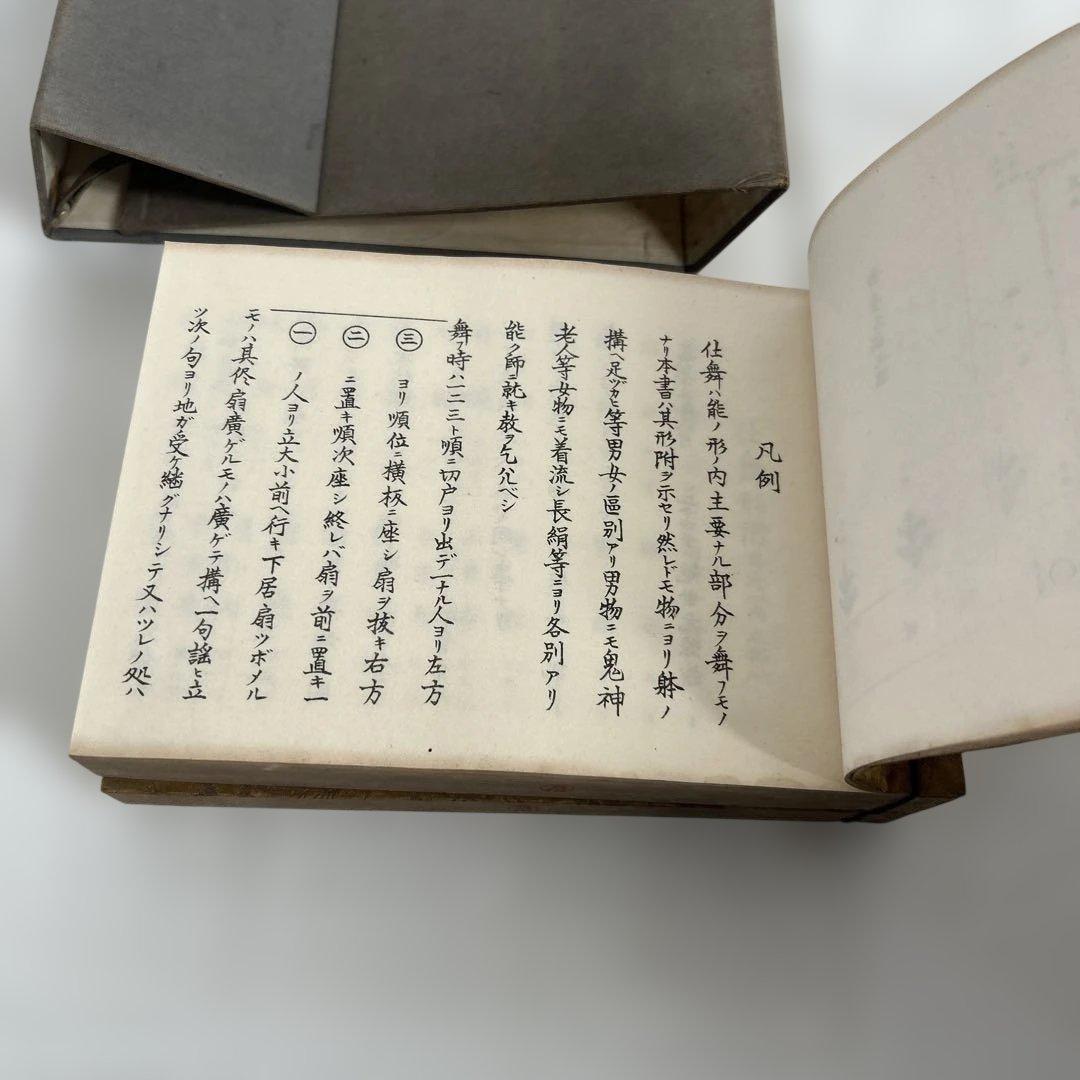 凡例
仕舞ハ能ノ形ノ内主要ナル部分ヲ舞フモノ
ナリ本書ハ其形附ヲ示セリ然レドモ物ニヨリ躰ノ
構ヘ足ヅカヒ等男女ノ區別アリ男物ニモ鬼神
老人等女物ニモ着流シ長絹等ニヨリ各別アリ
能ク師ニ就キ教ヲ乞フベシ
舞フ時ハ一二三ト順ニ切戸ヨリ出デ一ナル人ヨリ左方
三 ヨリ順位ニ横板ニ座シ扇ヲ抜キ右方
二 ニ置キ順次座シ終レバ扇ヲ前ニ置キ一
一 ノ人ヨリ立大小前ヘ行キ下居扇ツボメル
モノハ其侭扇廣ゲルモノハ廣ゲテ構ヘ一句謡ヒ立
ツ次ノ句ヨリ地ガ受ケ繼グナリシテ又ハツレノ処ハ